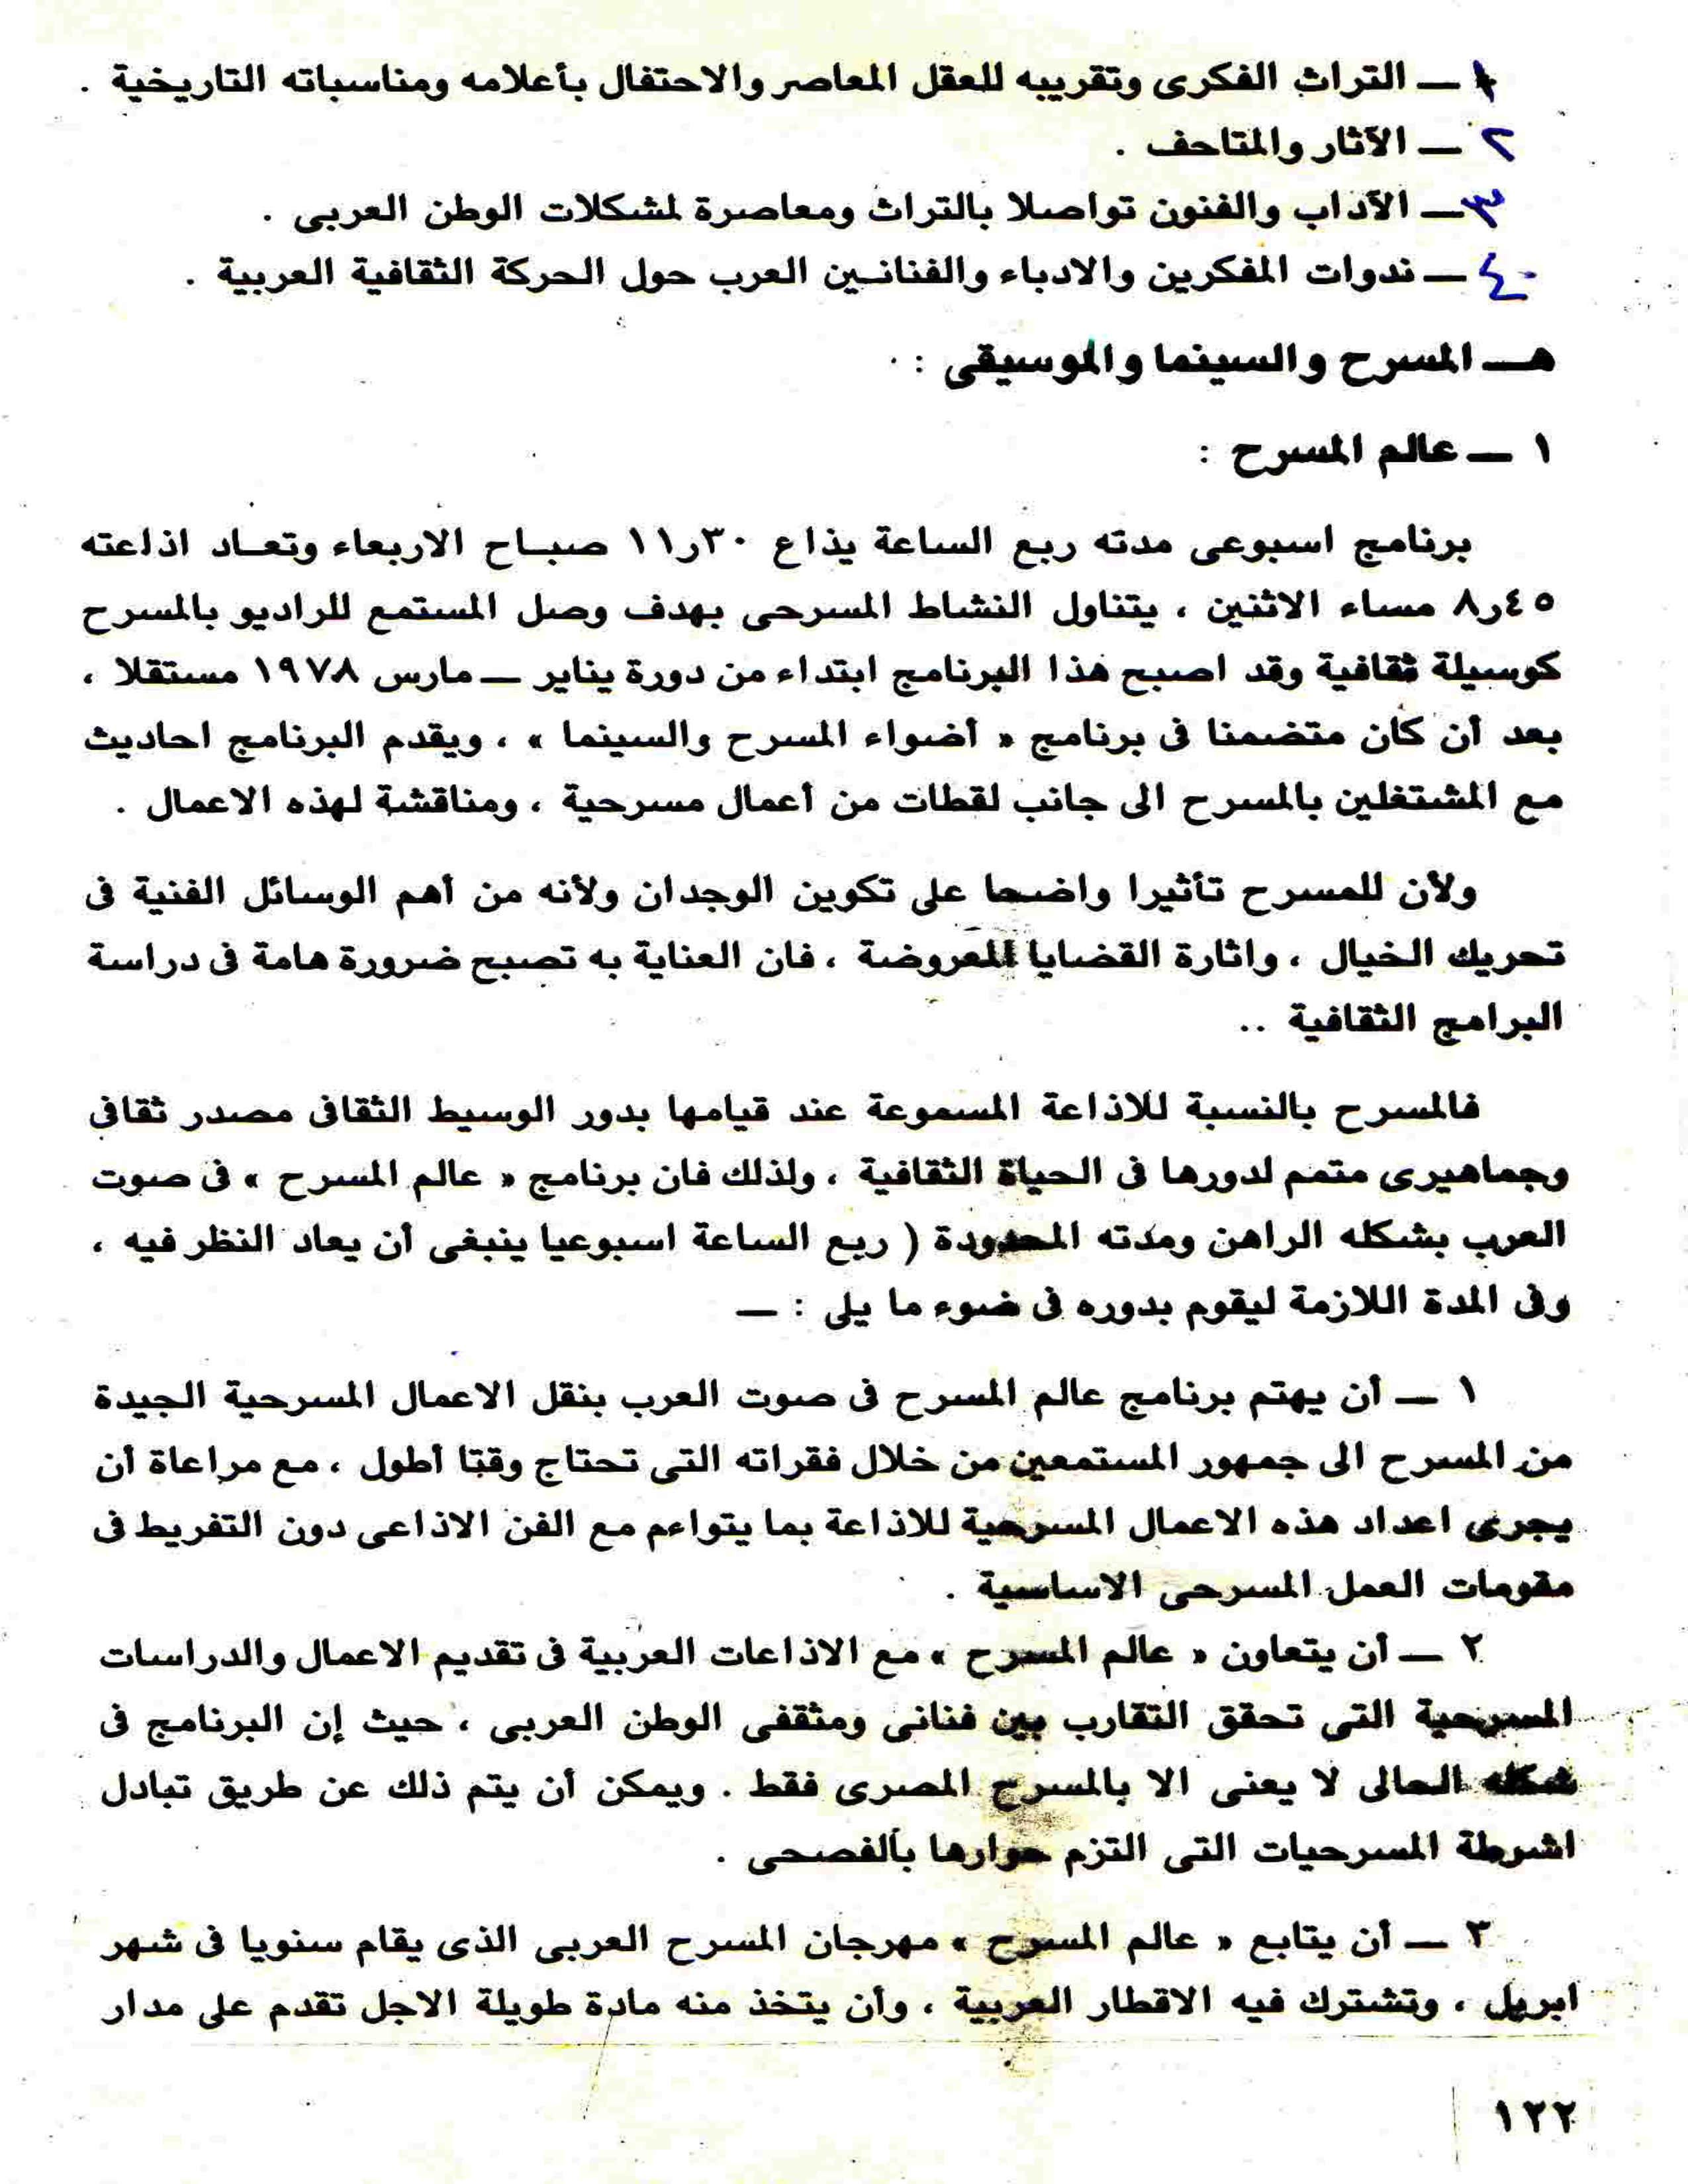 ١ — التراث الفكرى وتقريبه للعقل المعاصر والاحتفال بأعلامه ومناسباته التاريخية .
٢ — الآثار والمتاحف .
٣ — الآداب والفنون تواصلا بالتراث ومعاصرة لمشكلات الوطن العربى .
٤ — ندوات المفكرين والادباء والفنانين العرب حول الحركة الثقافية العربية .
هـ — المسرح والسينما والموسيقى :
١ — عالم المسرح :
برنامج اسبوعى مدته ربع الساعة يذاع ٣٠ر١١ صباح الاربعاء وتعاد اذاعته
٤٥ر٨ مساء الاثنين ، يتناول النشاط المسرحى بهدف وصل المستمع للراديو بالمسرح
كوسيلة ثقافية وقد اصبح هذا البرنامج ابتداء من دورة يناير — مارس ١٩٧٨ مستقلا ،
بعد أن كان متضمنا فى برنامج « أضواء المسرح والسينما » ، ويقدم البرنامج احاديث
مع المشتغلين بالمسرح الى جانب لقطات من أعمال مسرحية ، ومناقشة لهذه الاعمال .
ولأن للمسرح تأثيرا واضحا على تكوين الوجدان ولأنه من أهم الوسائل الفنية فى
تحريك الخيال ، واثارة القضايا المعروضة ، فان العناية به تصبح ضرورة هامة فى دراسة
البرامج الثقافية ..
فالمسرح بالنسبة للاذاعة المسموعة عند قيامها بدور الوسيط الثقافى مصدر ثقافى
وجماهيرى متمم لدورها فى الحياة الثقافية ، ولذلك فان برنامج « عالم المسرح » فى صوت
العرب بشكله الراهن ومدته المحدودة ( ربع الساعة اسبوعيا ينبغى أن يعاد النظر فيه ،
وفى المدة اللازمة ليقوم بدوره فى ضوء ما يلى : —
١ — أن يهتم برنامج عالم المسرح فى صوت العرب بنقل الاعمال المسرحية الجيدة
من المسرح الى جمهور المستمعين من خلال فقراته التى تحتاج وقتا أطول ، مع مراعاة أن
يجرى اعداد هذه الاعمال المسرحية للاذاعة بما يتواءم مع الفن الاذاعى دون التفريط فى
مقومات العمل المسرحى الاساسية .
٢ — أن يتعاون « عالم المسرح » مع الاذاعات العربية فى تقديم الاعمال والدراسات
المسرحية التى تحقق التقارب بين فنانى ومثقفى الوطن العربى ، حيث إن البرنامج فى
شكله الحالى لا يعنى الا بالمسرح المصرى فقط . ويمكن أن يتم ذلك عن طريق تبادل
اشرطة المسرحيات التى التزم حوارها بالفصحى .
٣ — أن يتابع « عالم المسرح » مهرجان المسرح العربى الذى يقام سنويا فى شهر
ابريل ، وتشترك فيه الاقطار العربية ، وأن يتخذ منه مادة طويلة الاجل تقدم على مدار
١٢٢